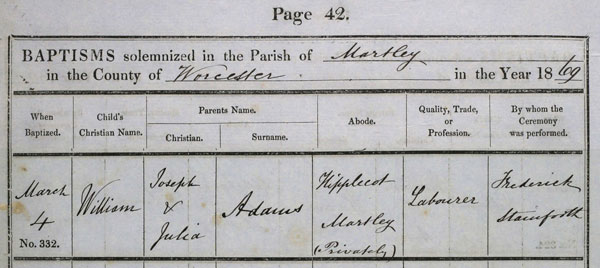 Page 42.
BAPTISMS solemnized in the Parish of Martley
in the County of Worcester in the Year 1869
When Baptized.
Child's Christian Name.
Parents Name.
Christian.
Surname.
Abode.
Quality, Trade, or Profession.
By whom the Ceremony was performed.
March
4
No. 332.
William
Joseph
&
Julia
Adams
Hipplecot
Martley
(Privately)
Labourer
Frederick